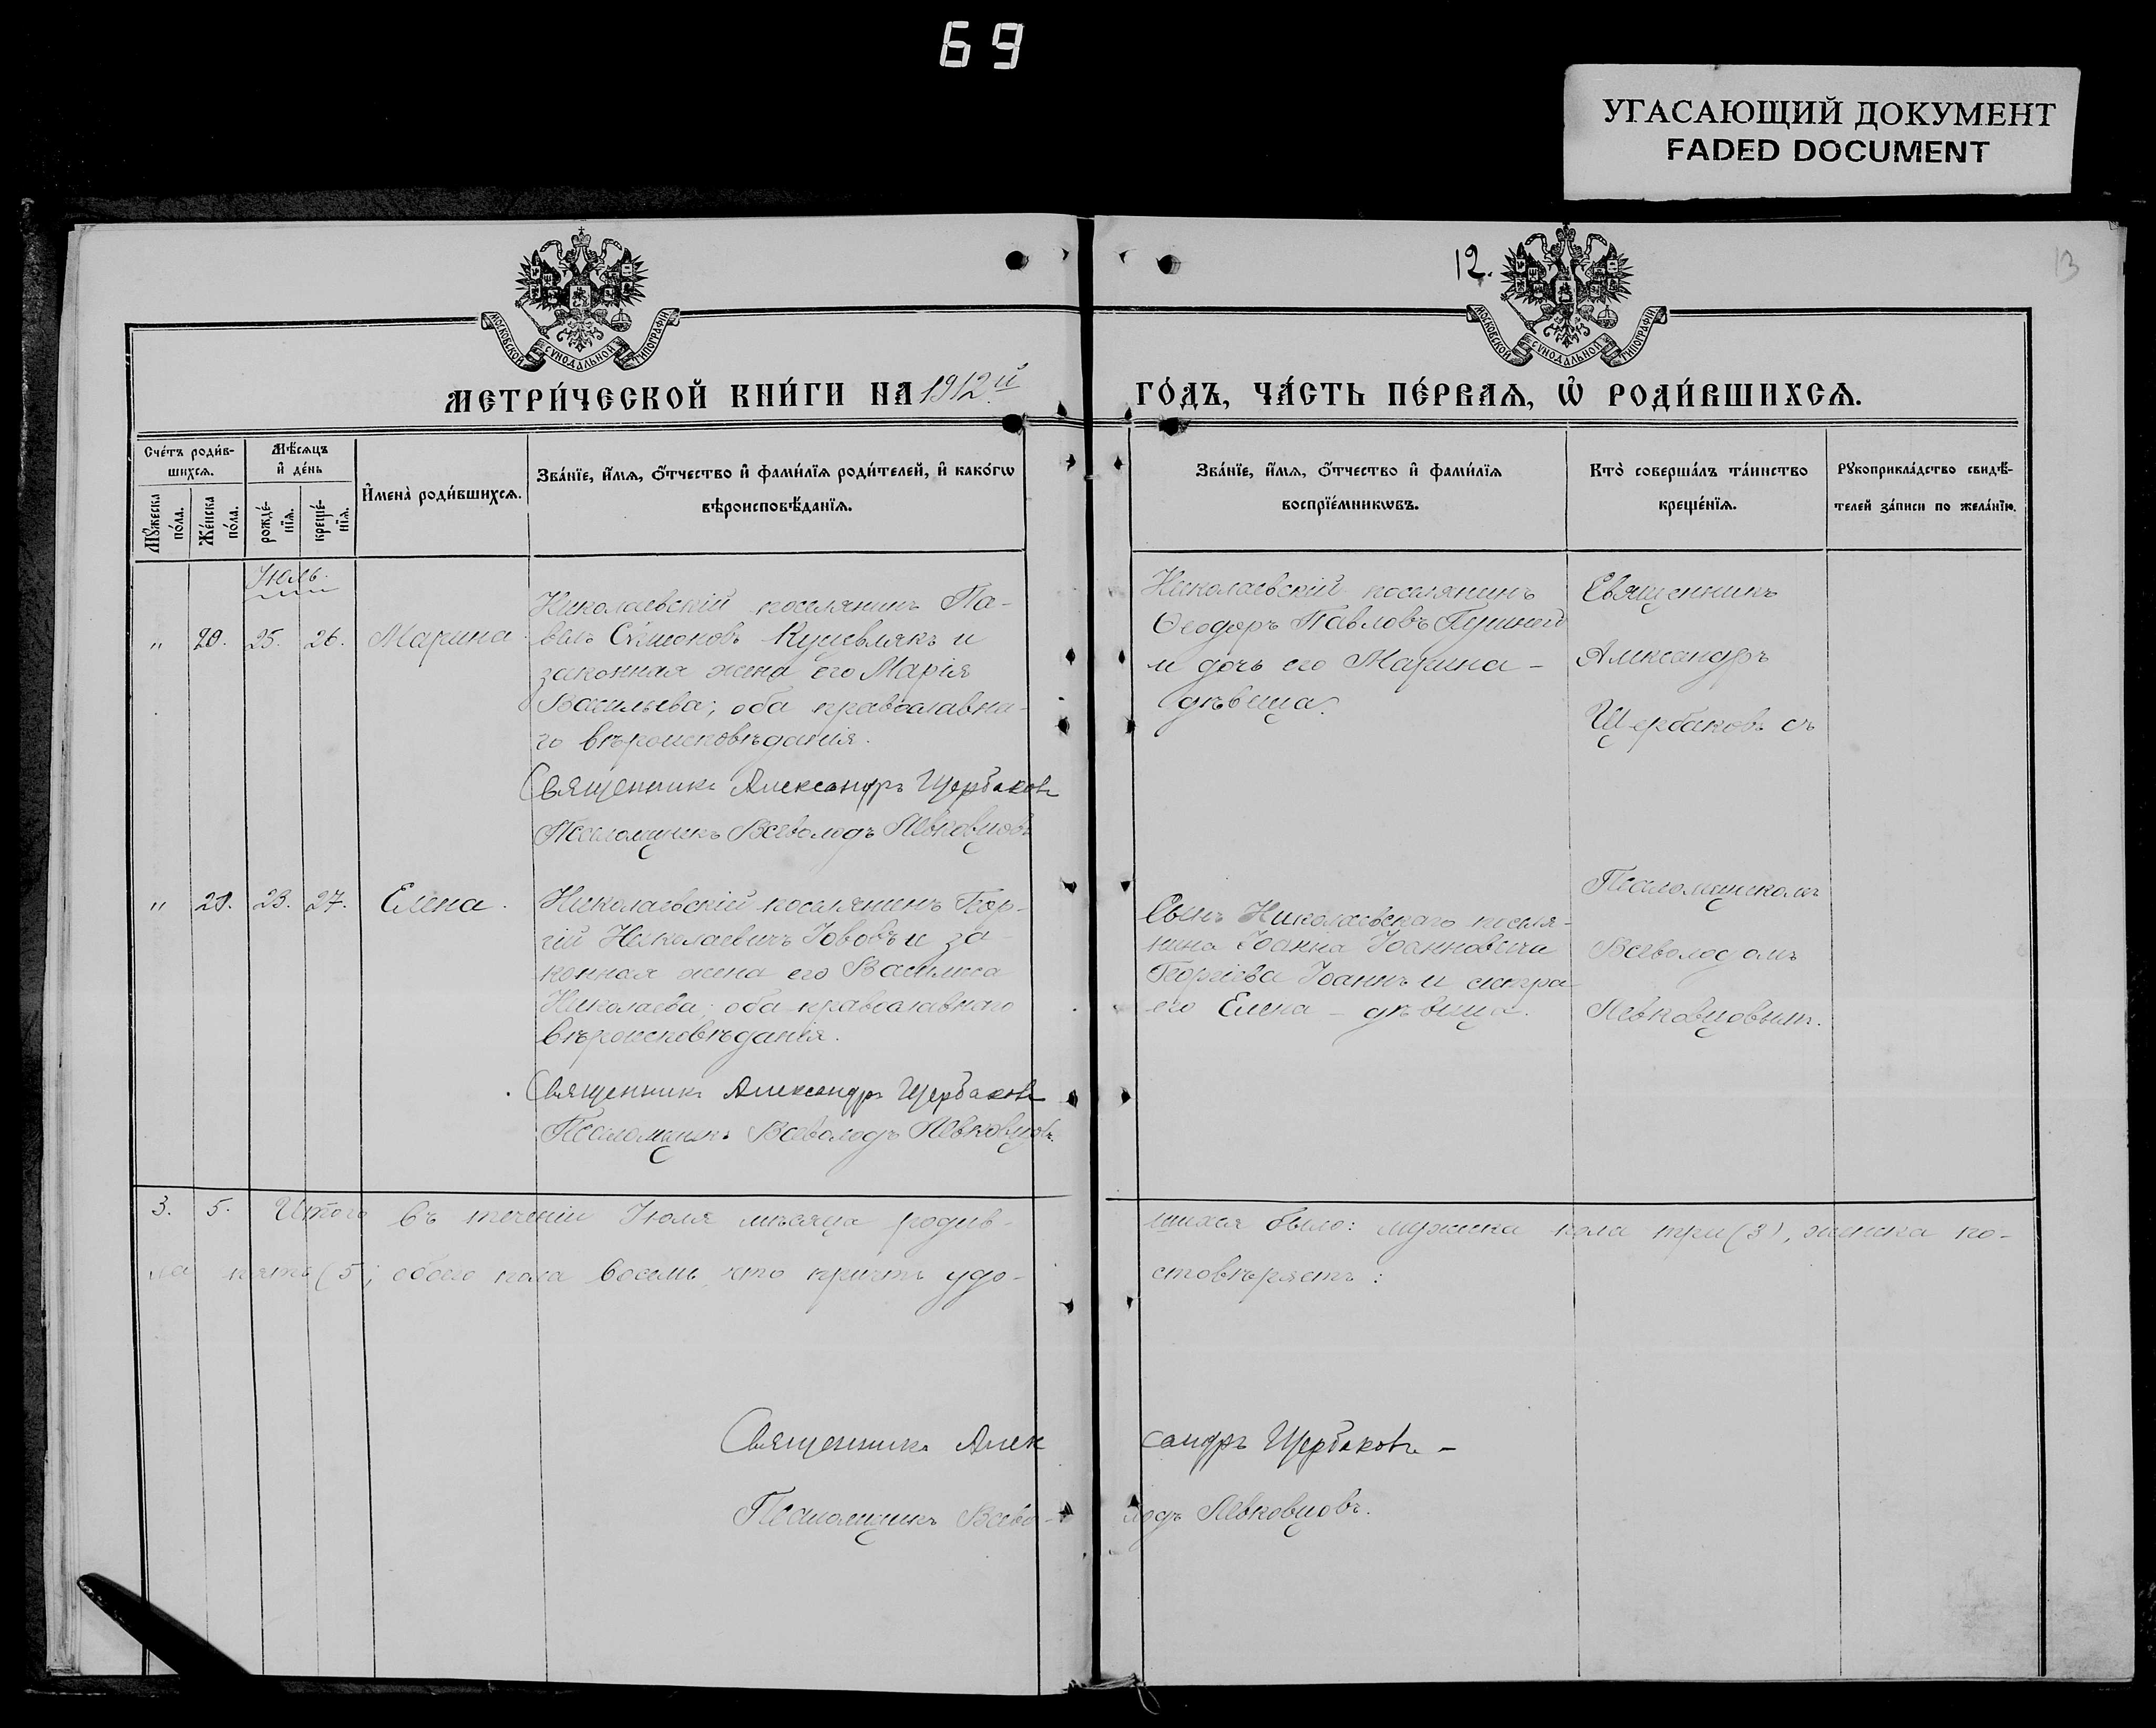 69
УГАСАЮЩИЙ ДОКУМЕНТ
FADED DOCUMENT
12.
13
МОСКОВСКОЙ СУНОДАЛЬНОЙ ТИПОГРАФІИ
МОСКОВСКОЙ СУНОДАЛЬНОЙ ТИПОГРАФІИ
МЕТРИ́ЧЕСКОЙ КНИ́ГИ НА 1912.й ГО́ДЪ, ЧА́СТЬ ПЕ́РВАѦ, Ѡ҆ РОДИ́ВШИХСѦ.
Сче́тъ роди́в-
шихсѧ.
Мꙋ́жеска по́ла.
Же́нска по́ла.
Мѣ́сѧцъ
и҆ де́нь
рожде́-
нїѧ.
креще́-
нїѧ.
И҆мена̀ роди́вшихсѧ.
Зва́нїе, и҆́мѧ, о҆́тчество и҆ фами́лїѧ роди́телей, и҆ како́гѡ
вѣроисповѣ́данїѧ.
Зва́нїе, и҆́мѧ, о҆́тчество и҆ фами́лїѧ
воспрїе́мникѡвъ.
Кто̀ соверша́лъ та́инство
креще́нїѧ.
Рꙋкоприкла́дство свидѣ́-
телей за́писи по жела́нїю.
Іюль.
" 20. 25. 26. Марина.
Николаевскій поселянинъ Па-
велъ Сѵмеоновъ Кушвлякъ и
законная жена его Марія
Васильева, оба православна-
го вѣроисповѣданія.
Священникъ Александръ Щербаковъ
Псаломщикъ Всеволодъ Левковцовъ
Николаевскій поселянинъ
Ѳеодоръ Павловъ Пушной
и дочь его Марина –
дѣвица.
Священникъ
Александръ
Щербаковъ съ
Псаломщикомъ
Всеволодомъ
Левковцовымъ.
" 21. 23. 27. Елена.
Николаевскій поселянинъ Геор-
гій Николаевичъ Іововъ и за-
конная жена его Василиса
Николаева, оба православнаго
вѣроисповѣданія.
Священникъ Александръ Щербаковъ
Псаломщикъ Всеволодъ Левковцовъ.
Сынъ Николаевскаго поселя-
нина Іоанна Іоанновича
Георгіева Іоаннъ и сестра
его Елена – дѣвица.
3. 5. Итого въ теченіи Іюля мѣсяца родив-
шихся было: мужска пола три (3), женска по-
ла пять (5); обоего пола восемь, что причтъ удо-
стовѣряетъ:
Священникъ Александръ Щербаковъ –
Псаломщикъ Всеволодъ Левковцовъ.